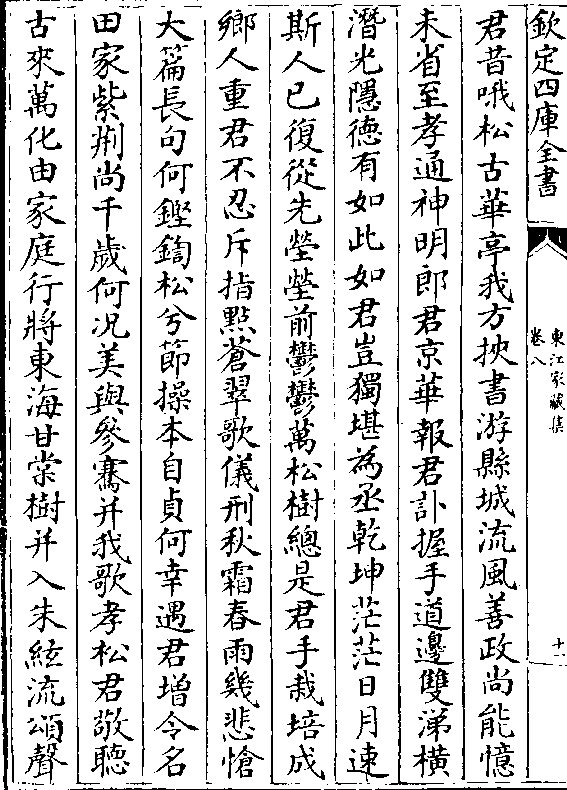 欽定四庫全書
東江家藏集
卷八
十一
君昔哦松古華亭我方挾書游縣城流風善政尚能憶
未省至孝通神明郎君京華報君訃握手道邊雙涕橫
潛光隱德有如此如君豈獨堪為丞乾坤茫茫日月速
斯人已復從先塋塋前鬱鬱萬松樹總是君手栽培成
鄉人重君不忍斥指點蒼翠歌儀刑秋霜春雨幾悲愴
大篇長句何鏗鍧松兮節操本自貞何幸遇君增令名
田家紫荆尚千歲何况美與參騫并我歌孝松君敬聽
古來萬化由家庭行將東海甘棠樹并入朱絃流頌聲